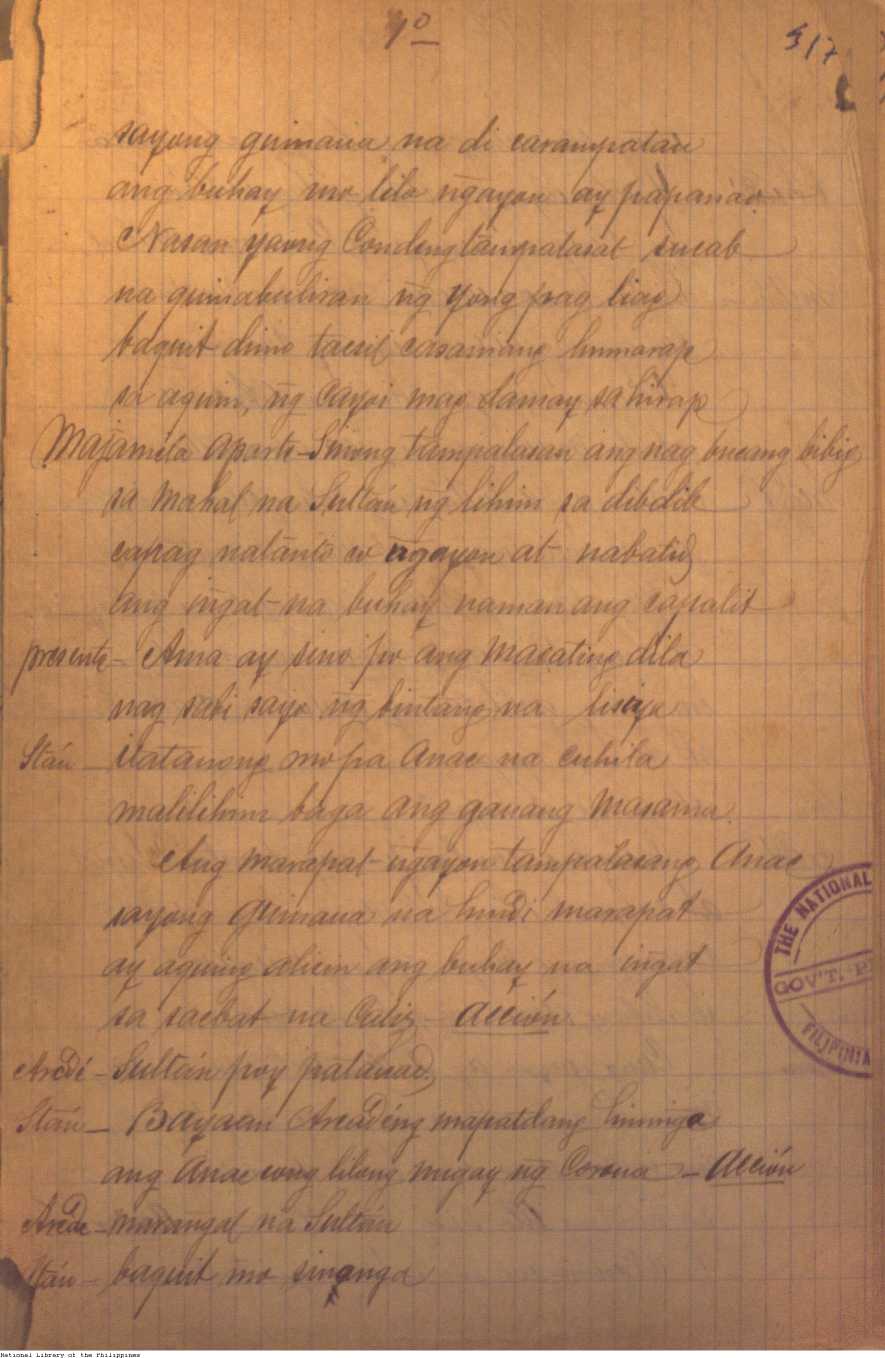 1º
517
sayong guinaua na di carampatan
ang buhay mo lilo ñgayon ay papanao
Nasan yaong Condeng tampalasat sucab
na guinabuliran ñg yong pag liag
baquit dimo tacsil casamang humarap
sa aquin, ñg cayoi mag damay sa hirap
Majamela aparte - Sinong tampalasan ang nag bucang bibig
sa mahal na Sultán ñg lihim sa dibdib
capag natanto co ñgayon at nabatid
ang iñgat na buhay naman ang capalit
presente - Ama ay sino po ang macating dila
nag sabi sayo ñg bintang na lisiya
Stán - itatanong mo pa Anac na cuhila
malilihim baga ang gauang masama.
Ang marapat ñgayon tampalasang Anac
sayong guinaua na hindi marapat
ay aquing aliein ang buhay na iñgat
sa sacbat na Caliz - Acción
Arcdé - Sultán poy patauad,
Stán - Bayaan Arcadeng mapatdang hininga
ang Anac cong lilong nuigay ñg Corona - Acción
Arcde - marangal na Sultán
Stán - baquit mo sinanga
THE NATIONAL
GOV'T.
FILIPINIA
National Library of the Philippines